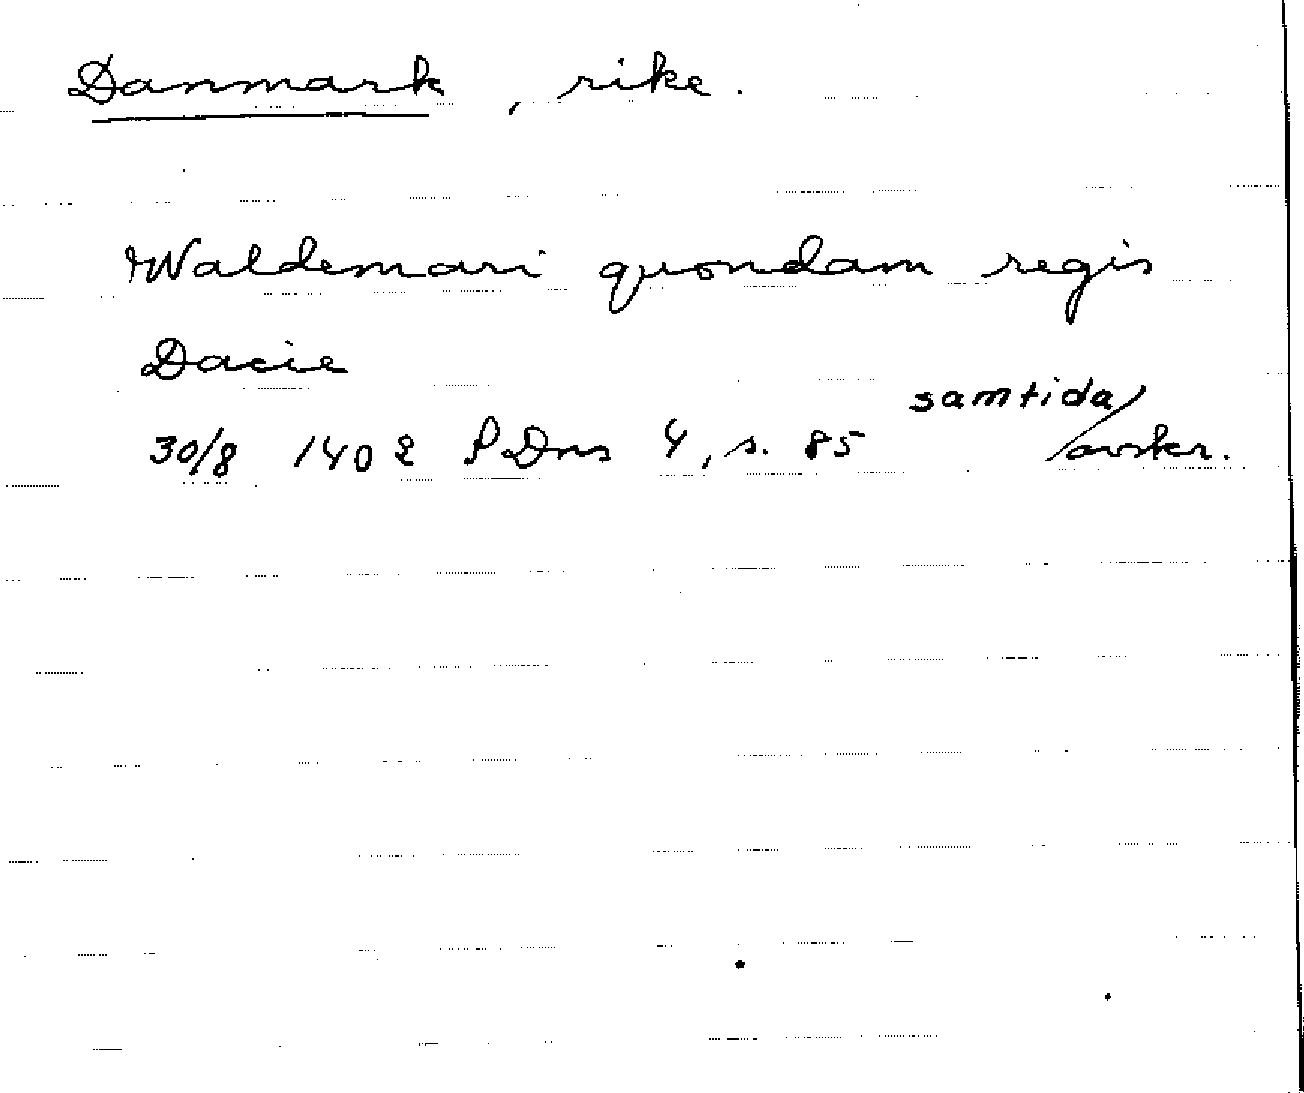 Danmark, rike.
Waldemari quondam regis
Dacie
30/8 1402 PDns 4, s. 85 samtida avskr.